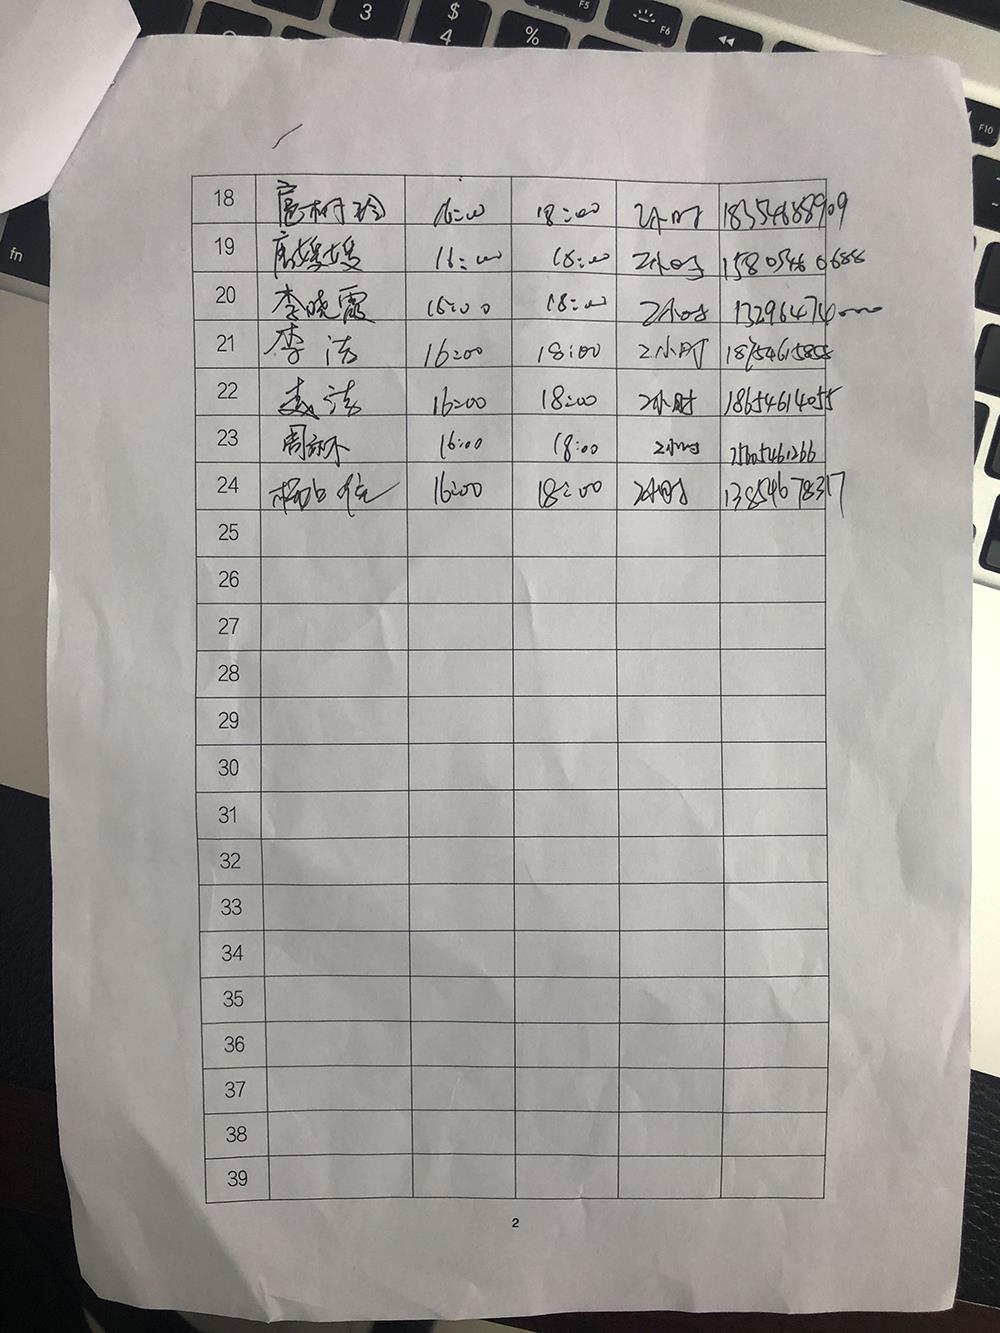 3 $ 4 % F5 F6
F10
fn
18 16:00 18:00 2小时 18354688909
19 16:00 18:00 2小时 15805460688
20 李晓霞 16:00 18:00 2小时
21 李洁 16:00 18:00 2小时
22 16:00 18:00 2小时 18654614055
23 16:00 18:00 2小时
24 16:00 18:00 2小时 13854678317
25
26
27
28
29
30
31
32
33
34
35
36
37
38
39
2